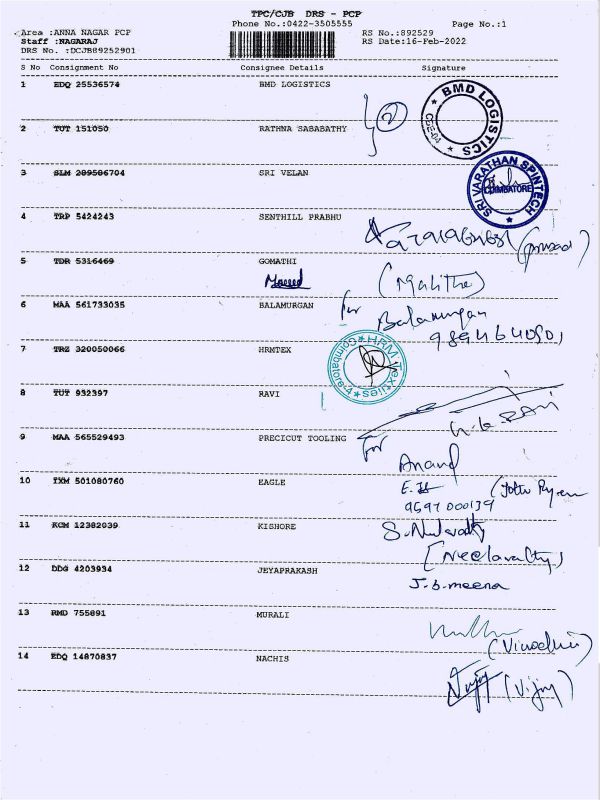 TPC/CJB DRS - PCP
Phone No.:0422-3505555 Page No.:1
Area :ANNA NAGAR PCP RS No.:892529
Staff :NAGARAJ RS Date:16-Feb-2022
DRS No. :DCJB89252901
S No Consignment No Consignee Details Signature
1 EDQ 25536574 BMD LOGISTICS
BMD LOGISTICS
CBE-04
2 TUT 151050 RATHNA SABABATHY
3 SLM 289506704 SRI VELAN
SRI VARATHAN SPINTECH
COIMBATORE
4 TRP 5424243 SENTHILL PRABHU
(prasad)
5 TDR 5316469 GOMATHI
(Malitha)
6 MAA 561733035 BALAMURGAN
for Balamurgan
9894640501
7 TRZ 320050066 HRMTEX
HRM Textiles
Coimbatore-4
8 TUT 932397 RAVI
9 MAA 565529493 PRECICUT TOOLING
for
Anand
10 IXM 501080760 EAGLE
9597000139
11 KCM 12382039 KISHORE
12 DDG 4203934 JEYAPRAKASH
J.b.meena
13 RMD 755891 MURALI
14 EDQ 14870837 NACHIS
(Vijay)